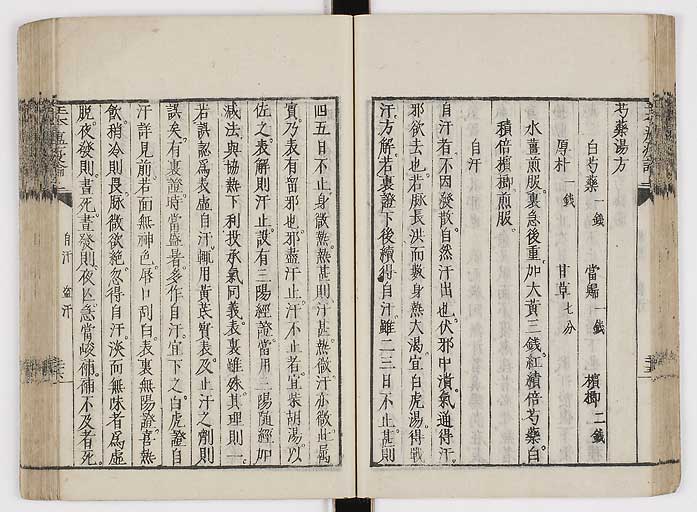 芍藥湯方
白芍藥一錢 當歸一錢 檳榔二錢
厚朴一錢 甘草七分
水薑煎服。裏急後重。加大黃三錢。紅積倍芍藥。白
積倍檳榔。煎服。
自汗
自汗者。不因發散。自然汗出也。伏邪中潰。氣通得汗。
邪欲去也。若脉長洪而數。身熱大渴。宜白虎湯。得戰
汗方解。若裏證下後。續得自汗。雖二三日不止。甚則
四五日不止。身微熱。熱甚則汗甚。熱微汗亦微。此屬
實。乃表有留邪也。邪盡汗止。汗不止者。宜柴胡湯以
佐之。表解則汗止。設有三陽經證。當用三陽隨經加
減法。與協熱下利投承氣同義。表裏雖殊。其理則一。
若誤認爲表虛自汗。輒用黃芪實表。及止汗之劑則
誤矣。有裏證。時當盛暑。多作自汗。宜下之。白虎證自
汗詳見前。若面無神色。唇口刮白。表裏無陽證。喜熱
飲。稍冷則畏。脉微欲絶。忽得自汗。淡而無味者爲虛
脱。夜發則晝死。晝發則夜亡。急當峻補。補不及者死。
自汗 盜汗